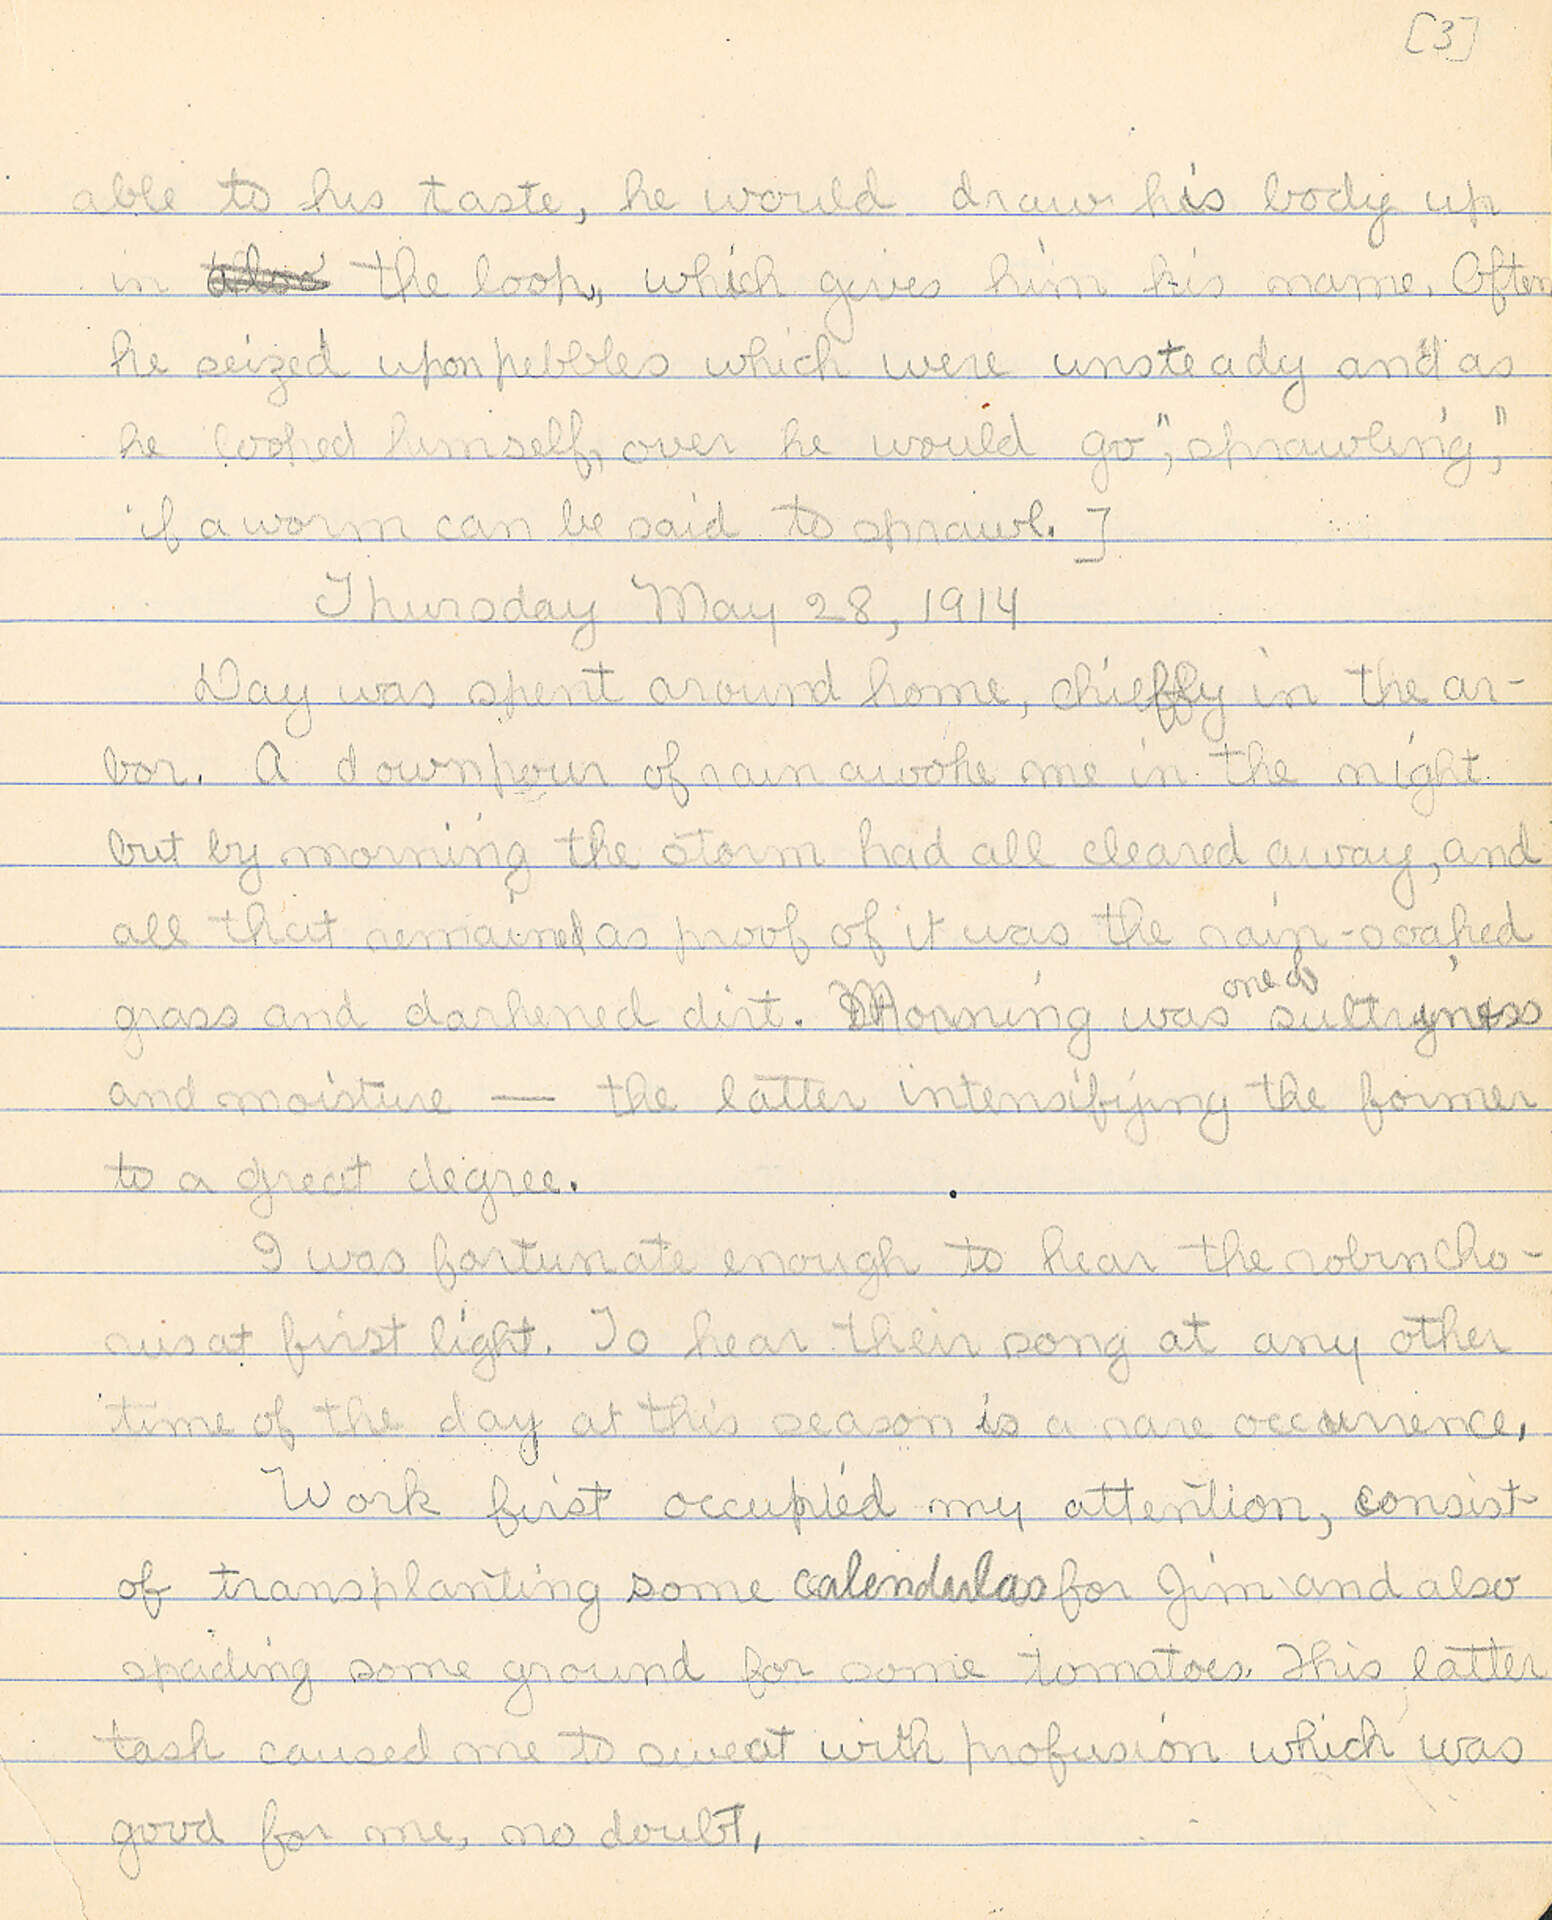 [3]
able to his taste, he would draw his body up
in the loop, which gives him his name. Often
he seized upon pebbles which were unsteady and as
he looped himself, over he would go", sprawling,"
if a worm can be said to sprawl.]
Thursday May 28, 1914
Day was spent around home, chiefly in the ar-
bor. A downpour of rain awoke me in the night
but by morning the storm had all cleared away, and
all that remained as proof of it was the rain-soaked
grass and darkened dirt. Morning was one of sultryness
and moisture — the latter intensifying the former
to a great degree.
I was fortunate enough to hear the robin cho-
rus at first light. To hear their song at any other
time of the day at this season is a rare occurrence.
Work first occupied my attention, consist
of transplanting some calendulas for Jim and also
spading some ground for some tomatoes. This latter
task caused me to sweat with profusion which was
good for me, no doubt.